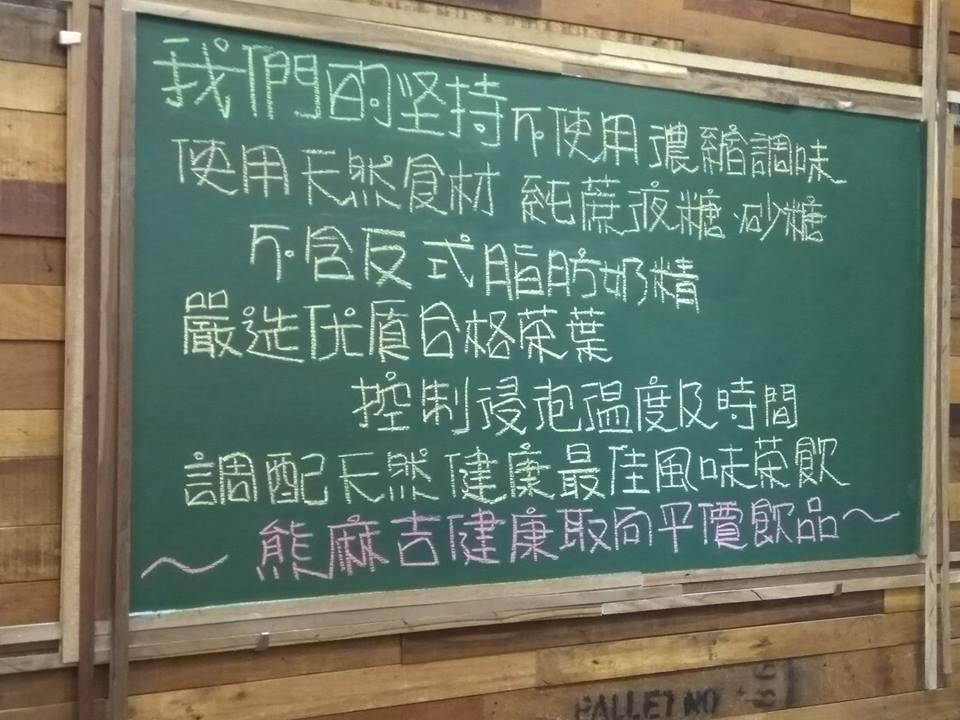 我們的坚持 不使用濃縮調味
使用天然食材 純蔗液糖.砂糖
不含反式脂肪奶精
嚴选优質合格茶葉
控制浸泡溫度及時間
調配天然健康最佳風味茶飲
～熊麻吉健康取向平價飲品～
PALLET NO